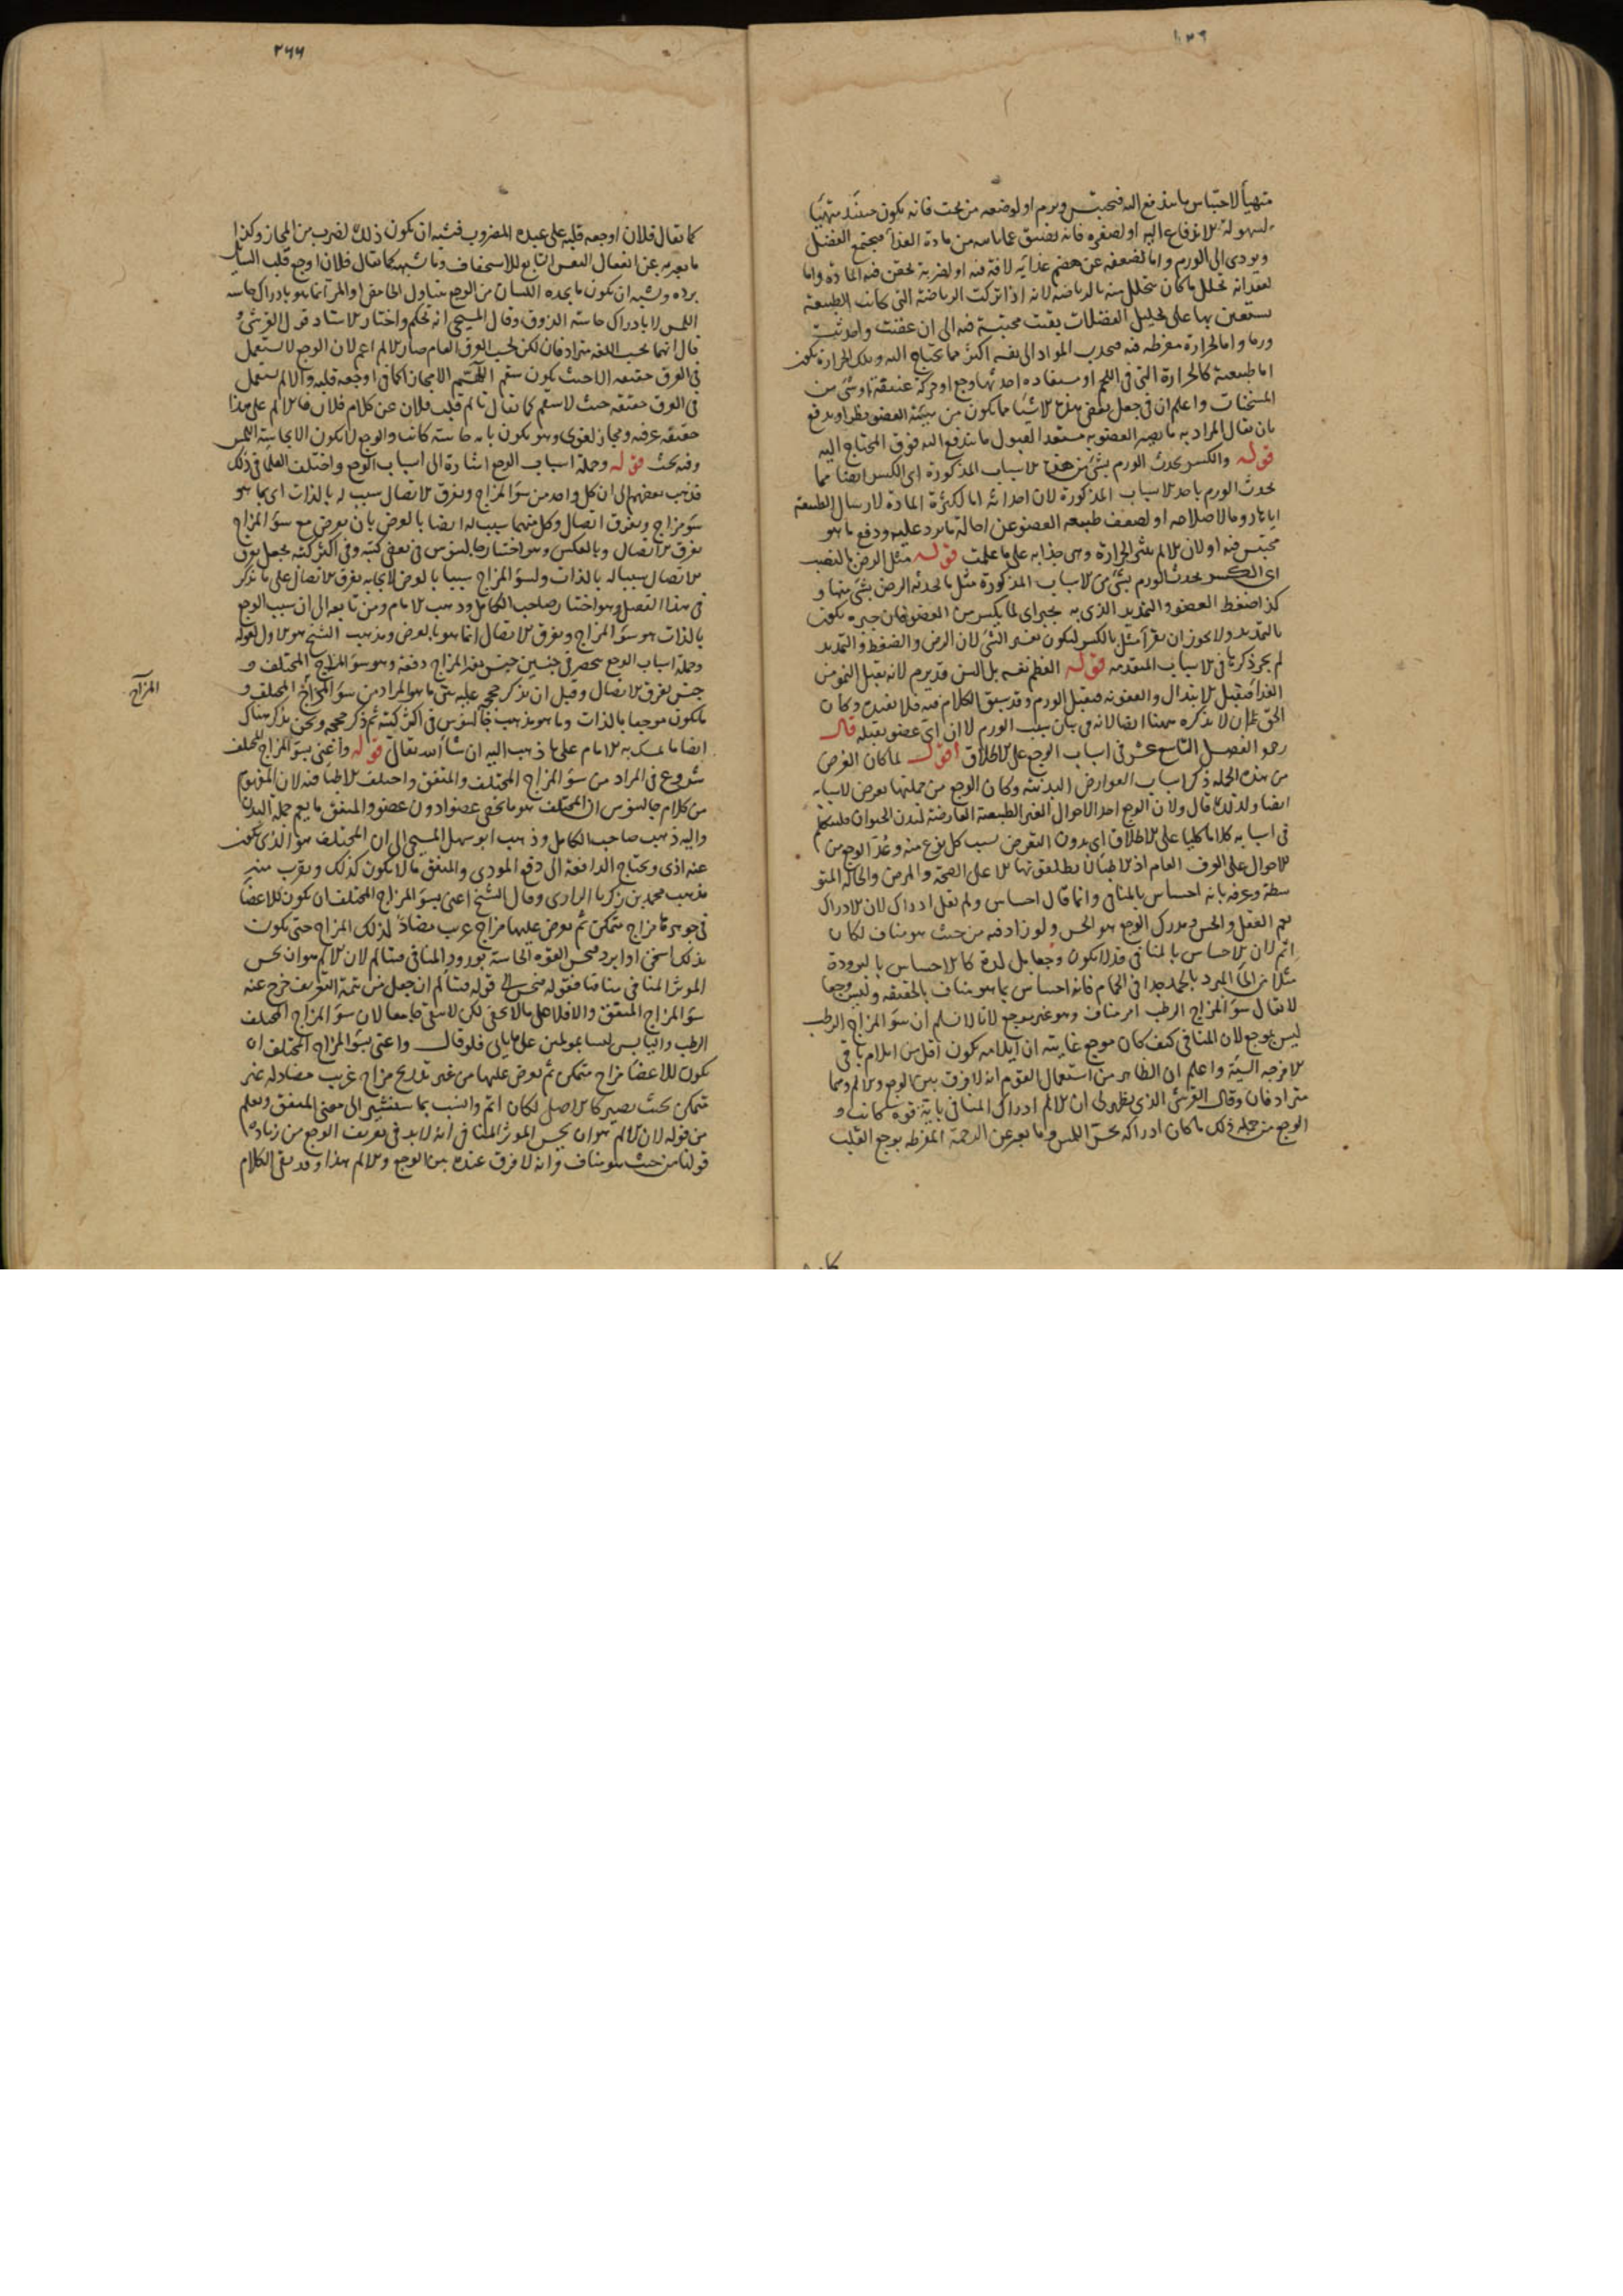 متهيأ لاحتباس ما يندفع اليه فيحتبس ويرم او لوضعه من تحت فانه يكون حينئذ متهيئا
لسهولة الاندفاع اليه او لصغره فانه يضيق عما ياتيه من مادة الغذا فيجتمع الفضل
ويودى الى الورم واما لضعفه عن هضم غذايه لافة فيه او لضربة تحقن فيه المادة واما
لفقدانه تحلل ما كان يتحلل منه بالرياضة لانه اذا تركت الرياضة التى كانت الطبيعة
تستعين بها على تحليل الفضلات بقيت محتبسة فيه الى ان عفنت واحدثت
ورما واما لحرارة مفرطه فيه فيجذب المواد الى نفسه اكثر مما يحتاج اليه وتلك الحرارة تكون
اما طبيعية كالحرارة التى فى اللحم او مستفاده احدثها وجع او حركة عنيفة او شئ من
المسخنات واعلم ان فى جعل بعض هذه الاشيا مما يكون من هيئة العضو نظرا ويدفع
بان يقال المراد به ما يصير العضو به مستعدا لقبول ما يندفع اليه فوق المحتاج اليه
قوله والكسر يحدث الورم بشئ من هذه الاسباب المذكورة اى الكسر ايضا مما
يحدث الورم باحد الاسباب المذكورة لان احداثه اما لكثرة المادة لارسال الطبيعة
اياها روما لاصلاحه او لضعف طبيعة العضو عن احالة ما يرد عليه ودفع ما هو
محتبس فيه او لان الالم يثير الحرارة وهى جذابه على ما علمت قوله مثل الرض بالنصب
اى الكسر يحدث الورم بشئ من الاسباب المذكورة مثل ما يحدثه الرض بشئ منها و
كذا ضغط العضو والتمديد الذى به يجبر اى لما يكسر من العضو فان جبره يكون
بالتمديد ولا يجوز ان يقرأ مثل بالكسر ليكون تفسير الشئ لان الرض والضغط والتمديد
لم يجر ذكرها فى الاسباب المتقدمة قوله العظم نفسه بل السن قد يرم لانه يقبل النمو من
الغذا فيقبل الابتلال والعفونه فيقبل الورم وقد سبق الكلام فيه فلا نعيده وكان
الحق ان لا يذكره ههنا ايضا لانه فى بيان سبب الورم لا ان اى عضو يقبله قال
رحمه الفصل التاسع عشر فى اسباب الوجع على الاطلاق اقول لما كان الغرض
من هذه الجملة ذكر اسباب العوارض البدنية وكان الوجع من جملتها تعرض لاسبابه
ايضا ولذلك قال ولان الوجع احد الاحوال الغير الطبيعية العارضة لبدن الحيوان فلنتكلم
فى اسبابه كلاما كليا على الاطلاق اى بدون التعرض لسبب كل نوع منه وعد الوجع من
الاحوال على العرف العام اذ الاطبا لا يطلقونها الا على الصحة والمرض والحالة المتو
سطة وعرفه بانه احساس بالمنافى وانما قال احساس ولم يقل ادراك لان الادراك
يعم العقل والحس ومدرك الوجع هو الحس ولو زاد فيه من حيث هو مناف لكان
اتم لان الاحساس بالمنافى قد لا يكون وجعا بل لذة كالاحساس بالبرودة
مثلا من الما المبرد بالجمد جدا فى الحمام فانه احساس بما هو مناف بالحقيقة وليس وجعا
لا يقال سؤ المزاج الرطب امر مناف وهو غير موجع لانا لا نسلم ان سؤ المزاج الرطب
ليس بموجع لان المنافى كيف كان موجع غايته ان ايلامه يكون اقل من ايلام باقى
الامزجة السيئة واعلم ان الظاهر من استعمال القوم انه لا فرق بين الوجع والالم وهما
مترادفان وقال القرشى الذى يظهر لى ان الالم ادراك المنافى باية قوة كانت و
الوجع من جملة ذلك ما كان ادراكه بحس اللمس وما يعبر عن الرحمة المفرطه بوجع القلب
٢٦٦
كما يقال فلان اوجعه قلبه على عبده المضروب فيشبه ان يكون ذلك لضرب من المجاز وكذا
ما يعبر به عن انفعال النفس التابع للاستخفاف وما يشبهه كما يقال فلان اوجع قلب السايل
برده ويشبه ان يكون ما يجده اللسان من الوجع بتناول الحامض او المر انما هو بادراك حاسة
اللمس لا بادراك حاسة الذوق وقال المسيحى انه تحكم واختار الاستاد قول القرشى و
قال انهما بحسب اللغه مترادفان لكن بحسب العرف العام صار الالم اعم لان الوجع لا يستعمل
فى العرق حقيقه الا حيث يكون سقم اللهم الا مجازا كما فى اوجعه قلبه والالم يستعمل
فى العرف حقيقه حيث لا سقم كما يقال تالم قلب فلان من كلام فلان فالالم على هذا
حقيقه عرفيه ومجاز لغوى وهو يكون باية حاسة كانت والوجع لا يكون الا بحاسة اللمس
وفيه بحث قوله وجملة اسباب الوجع اشارة الى اسباب الوجع واختلف العلما فى ذلك
فذهب بعضهم الى ان كل واحد من سؤ المزاج وتفرق الاتصال سبب له بالذات اى بما هو
سؤ مزاج وتفرق اتصال وكل منهما سبب له ايضا بالعرض بان يعرض مع سؤ المزاج
تفرق الاتصال وبالعكس وهو اختيار جالينوس فى بعض كتبه وفى اكثر كتبه يجعل تفرق
الاتصال سببا له بالذات ولسؤ المزاج سببا بالعرض لايجابه تفرق الاتصال على ما يذكر
فى هذا الفصل وهو اختيار صاحب الكامل وذهب الامام ومن تابعه الى ان سبب الوجع
بالذات هو سؤ المزاج وتفرق الاتصال انما هو بالعرض ومذهب الشيخ هو الاول لقوله
وجملة اسباب الوجع منحصر فى جنسين جنس يغير المزاج دفعة وهو سؤ المزاج المختلف و
جنس يفرق الاتصال وقبل ان يذكر حججه عليه بين ما هو المراد من سؤ المزاج المختلف و
ما يكون موجبا بالذات وما هو مذهب جالينوس فى اكثر كتبه ثم ذكر حججه ونحن نذكر هناك
ايضا ما تمسك به الامام على ما ذهب اليه ان شا الله تعالى قوله واعنى بسؤ المزاج المختلف
شروع فى المراد من سؤ المزاج المختلف والمتفق واختلف الاطبا فيه لان المفهوم
من كلام جالينوس ان المختلف هو ما يخص عضوا دون عضو والمتفق ما يعم جملة البدن
واليه ذهب صاحب الكامل وذهب ابو سهل المسيحى الى ان المختلف هو الذى يكون
عنه اذى ويحتاج الدافعة الى دفع المودى والمتفق ما لا يكون كذلك ويقرب منه
مذهب محمد بن زكريا الرازى وقال الشيخ اعنى بسؤ المزاج المختلف ان يكون للاعضا
فى جوهرها مزاج متمكن ثم يعرض عليها مزاج غريب مضاد لذلك المزاج حتى يكون
بذلك اسخن او ابرد فتحس القوه الحاسة بورود المنافى فيتالم لان الالم هو ان يحس
الموثر المنافى منافيا فقوله فتحس الى قوله فيتالم ان جعل من تتمة التعريف خرج عنه
سؤ المزاج المتفق والافلا على ما لا يخفى لكن لا يبقى جامعا لان سؤ المزاج المختلف
الرطب واليابس ليسا بمولمين على ما ياتى فلو قال واعنى بسؤ المزاج المختلف ان
يكون للاعضا مزاج متمكن ثم يعرض عليها من غير تدريج مزاج غريب مضاد له غير
متمكن بحيث يصير كالاصل لكان اتم وانسب بما سيشير الى معنى المتفق ويعلم
من قوله لان الالم هو ان يحس الموثر المنافى انه لا بد فى تعريف الوجع من زيادة
قولنا من حيث هو مناف وانه لا فرق عنده بين الوجع والالم هذا وقد بقى الكلام
المزاج